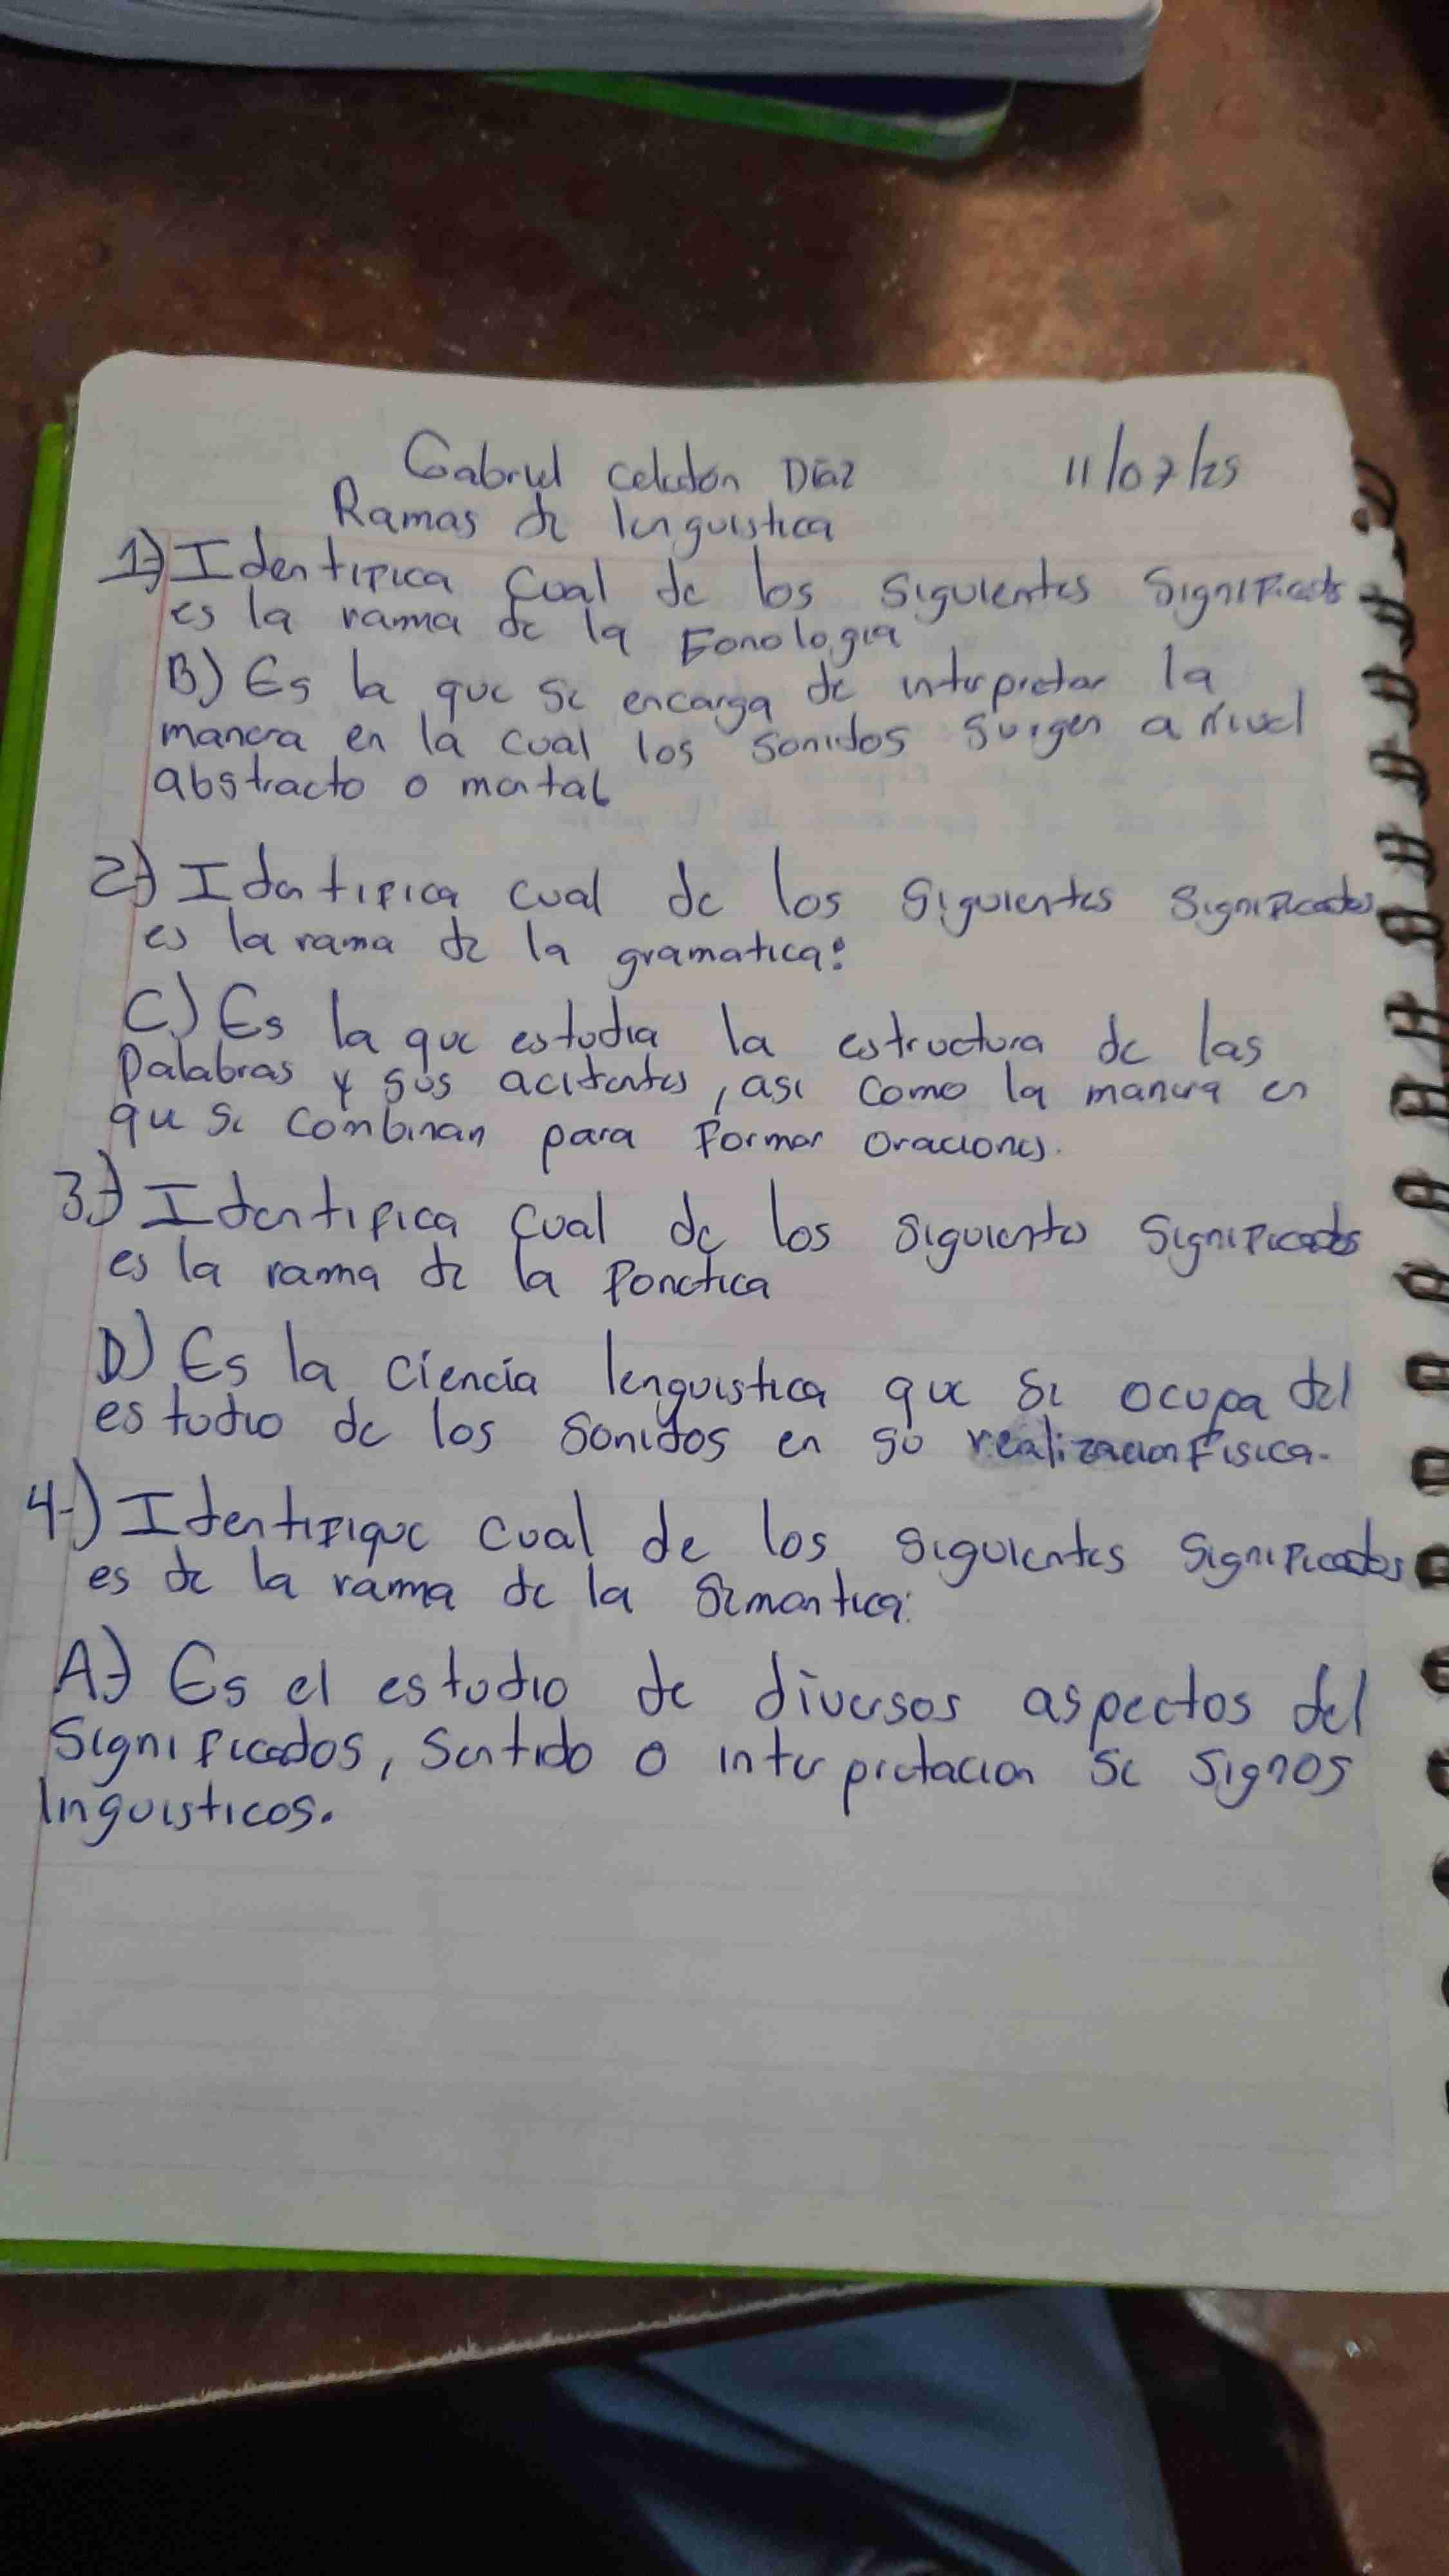 Gabriel Celedón Díaz 11/07/25
Ramas de linguistica
1-) Identifica cual de los siguientes significados
es la rama de la Fonologia
B) Es la que se encarga de interpretar la
manera en la cual los sonidos surgen a nivel
abstracto o mental
2-) Identifica cual de los siguientes significados
es la rama de la gramatica:
C) Es la que estudia la estructura de las
palabras y sus acidentes, asi como la manera en
que se combinan para formar oraciones.
3-) Identifica cual de los siguientes significados
es la rama de la fonetica
D) Es la ciencia lenguistica que se ocupa del
estudio de los sonidos en su realizacion fisica.
4-) Identifique cual de los siguientes significados
es de la rama de la semantica:
A-) Es el estudio de diversos aspectos del
significados, sentido o interpretacion se signos
linguisticos.